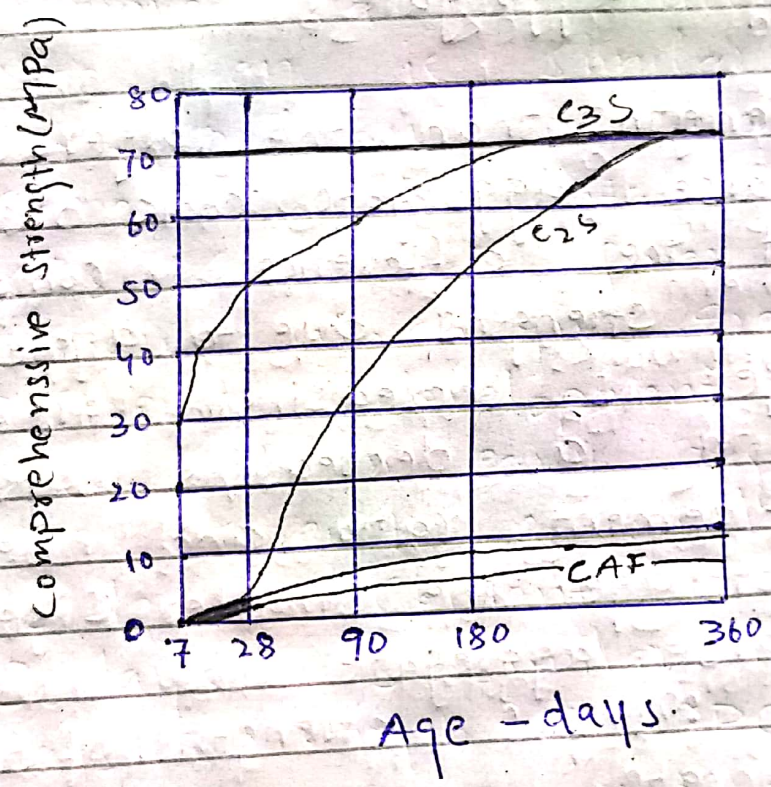 Comprehenssive strength (MPa)
80
70
60
50
40
30
20
10
0
C3S
C2S
CAF
7 28 90 180 360
Age - days.